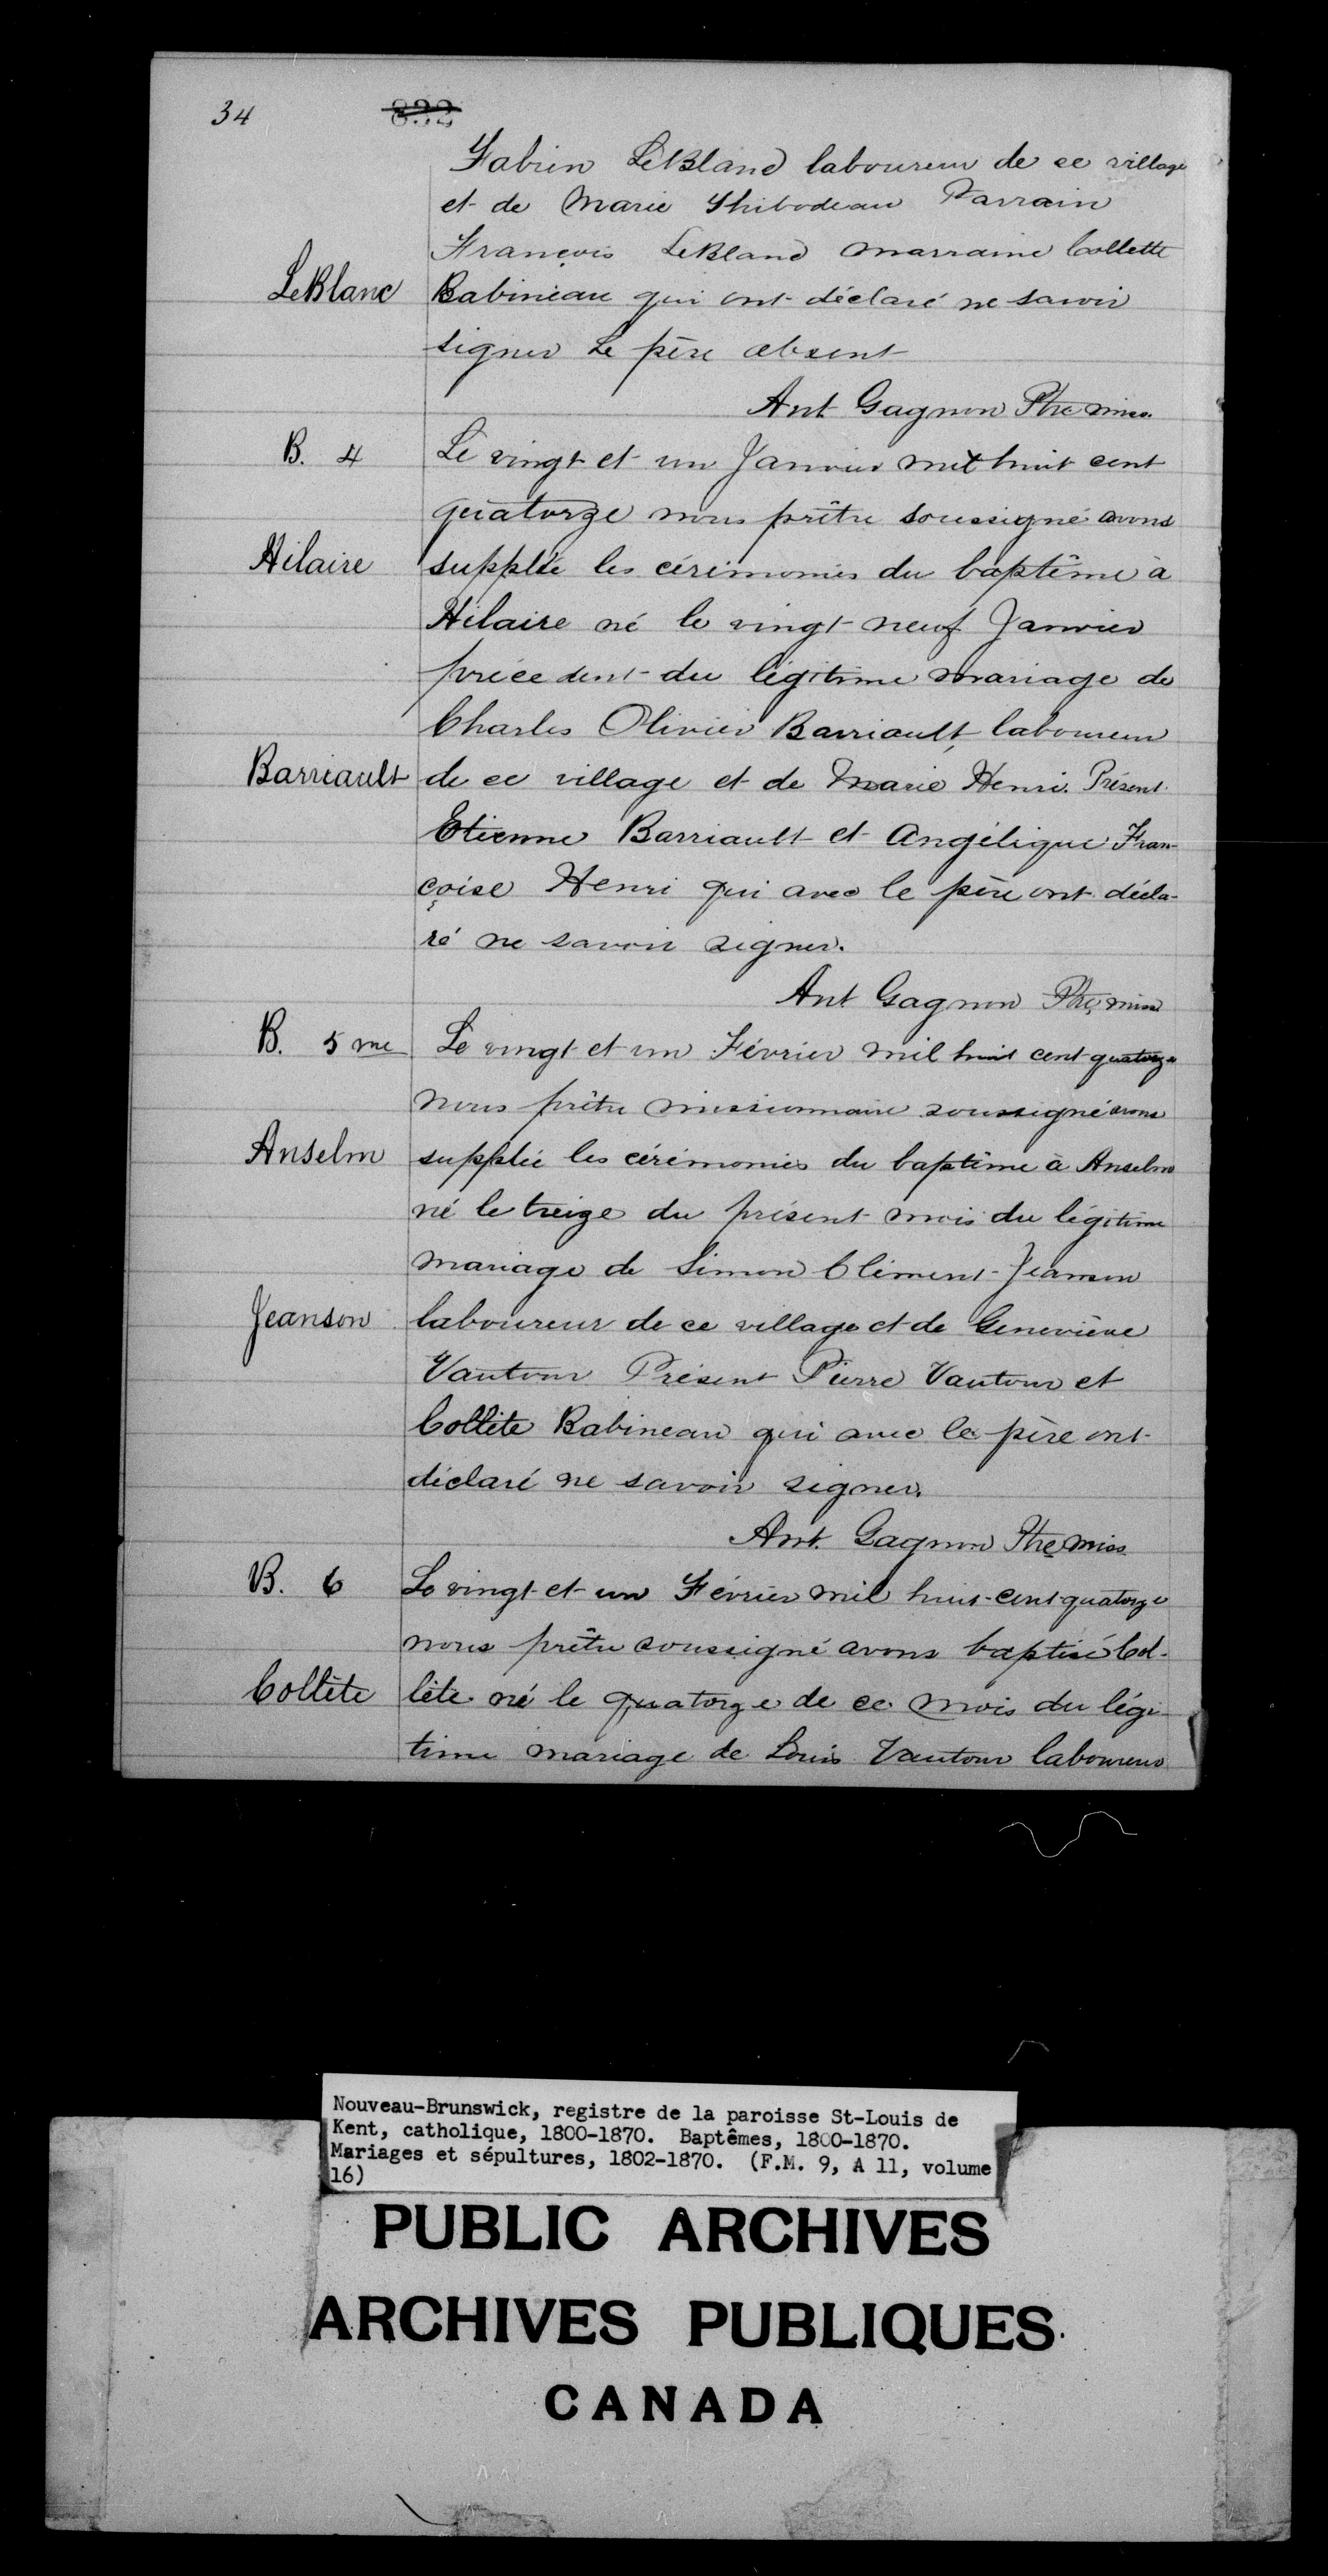 34
832
Fabien LeBlanc laboureur de ce village
et de Marie Thibodeau Parrain
François LeBlanc marraine Collette
LeBlanc Babineau qui ont déclaré ne savoir
signer Le père absent
Ant Gagnon Ptre miss.
B. 4 Le vingt et un Janvier mil huit cent
quatorze nous prêtre soussigné avons
Hilaire supplée les cérémonies du baptême à
Hilaire né le vingt neuf Janvier
précedent du légitime mariage de
Charles Olivier Barriault, laboureur
Barriault de ce village et de Marie Henri. Présent
Etienne Barriault et Angélique Fran-
çoise Henri qui avec le père ont décla-
ré ne savoir signer.
Ant Gagnon Ptre miss
B. 5 me Le vingt et un Février mil huit cent quatorze
nous prêtre missionnaire soussigné avons
Anselm supplée les cérémonies du baptême à Anselm
né le treize du présent mois du légitime
mariage de Simon Clément Jeanson
Jeanson laboureur de ce village et de Geneviève
Vautour Présent Pierre Vautour et
Collète Babineau qui avec le père ont
déclaré ne savoir signer.
Ant. Gagnon Ptre miss
B. 6 Le vingt et un Février mil huit-cent-quatorze
nous prêtre soussigné avons baptisé Col-
Collète lète né le quatorze de ce mois du légi-
time mariage de Louis Vautour laboureur
Nouveau-Brunswick, registre de la paroisse St-Louis de
Kent, catholique, 1800-1870. Baptêmes, 1800-1870.
Mariages et sépultures, 1802-1870. (F.M. 9, A 11, volume
16)
PUBLIC ARCHIVES
ARCHIVES PUBLIQUES
CANADA